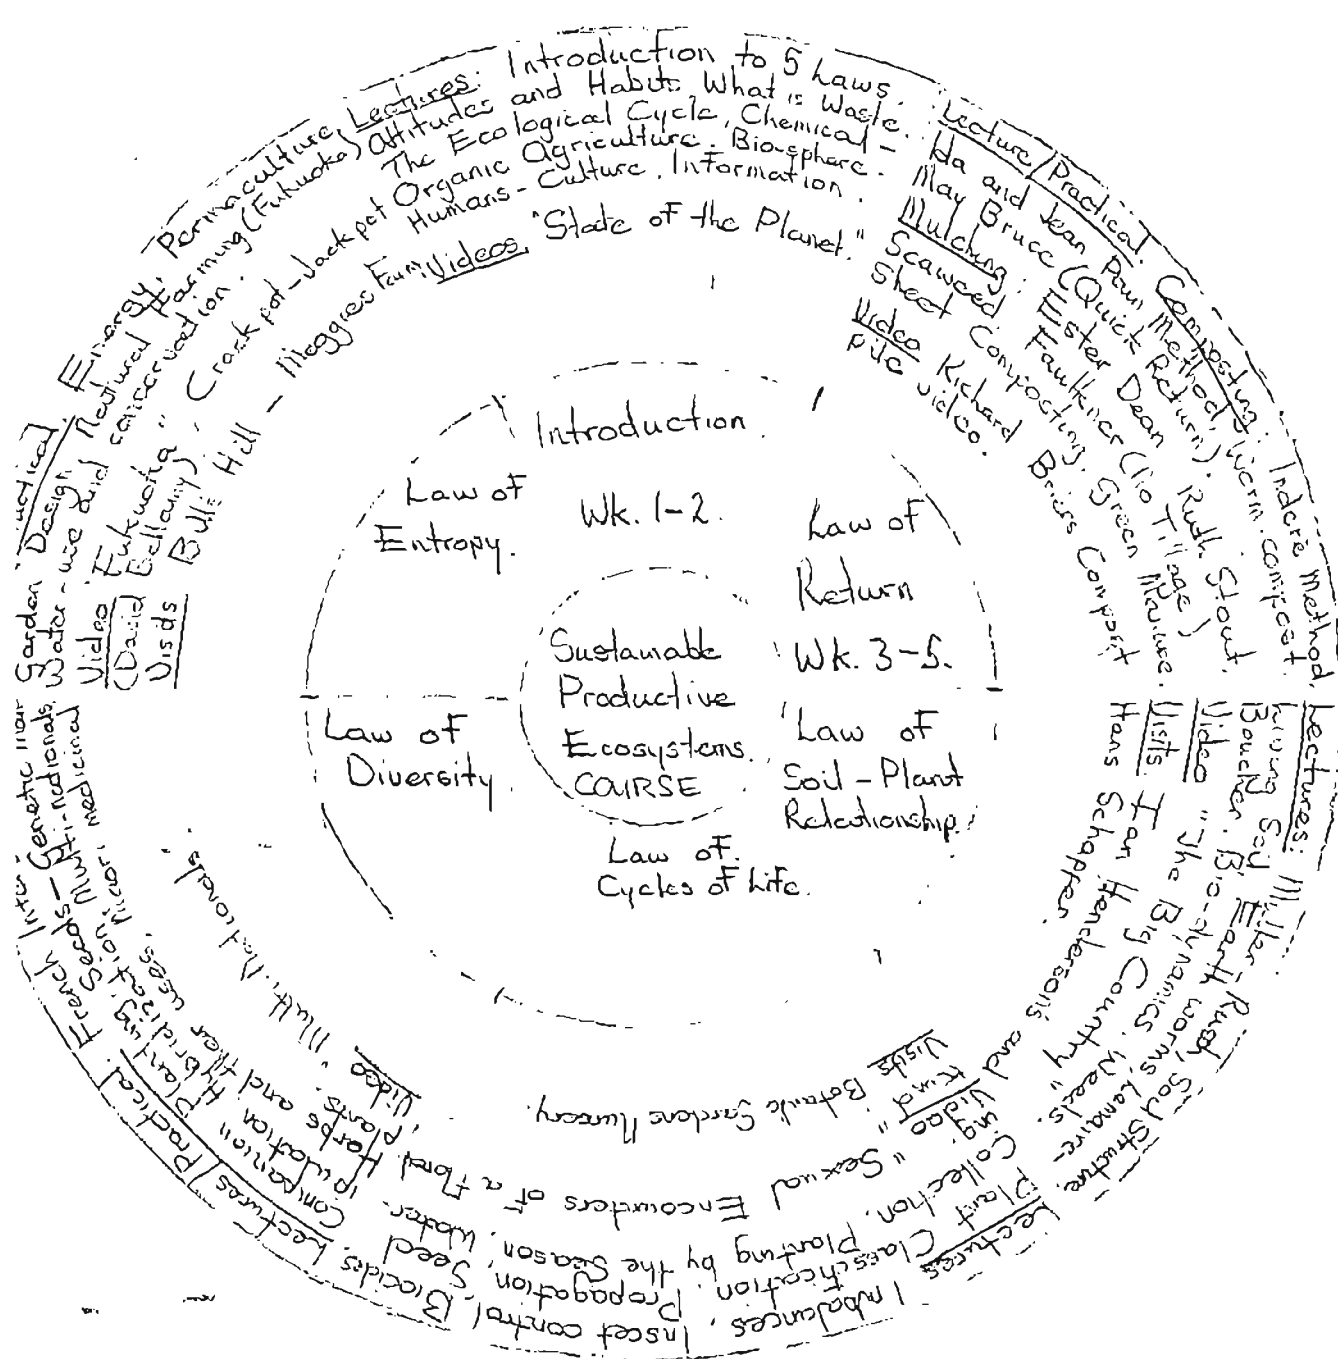 Sustainable
Productive
Ecosystems
COURSE
Introduction
Wk. 1-2.
Law of
Return
Wk. 3-5.
Law of
Soil-Plant
Relationship.
Law of
Cycles of Life.
Law of
Diversity.
Law of
Entropy.
Lectures: Introduction to 5 Laws.
Attitudes and Habits, What is Waste.
The Ecological Cycle, Chemical-
Organic Agriculture. Bio-sphere.
Humans-Culture, Information.
Videos. "State of the Planet."
Lecture/Practical. Composting: Indore Method,
Ida and Jean Pain Method, Worm compost.
May Bruce (Quick Return).
Mulching: Ester Dean Ruth Stout,
Seaweed Faulkner (No Tillage)
Sheet Composting, Green Manure.
Video Richard Briers Compost
pile video.
Lectures: Muller-Rusch, Soil Structure.
Living Soil Earth worms, Lemaire-
Boucher. Bio-dynamics. Weeds.
Video "The Big Country"
Visits. Ian Hendersons and
Hans Schapper.
Lectures Imbalances, Insect control, Biocides.
Plant Classification, Propagation, Seed
Collection, Planting by the season, Water-
ing.
Video "Sexual Encounters of a Floral
Kind"
Visits Botanic Gardens Nursery.
Lectures/Practical. French
Companion Planting, Seeds-Multi-nationals,
Hybridization
Herbs and their uses, medicinal
plants.
Video "Multi-Nationals"
Energy. Permaculture,
Garden Design, Natural Farming (Fukuoka)
Water-use and conservation.
Video. "Fukuoka" Crack pot-Jackpot
(David Bellamy)
Visits Bulls Hill - Maggies Farm.